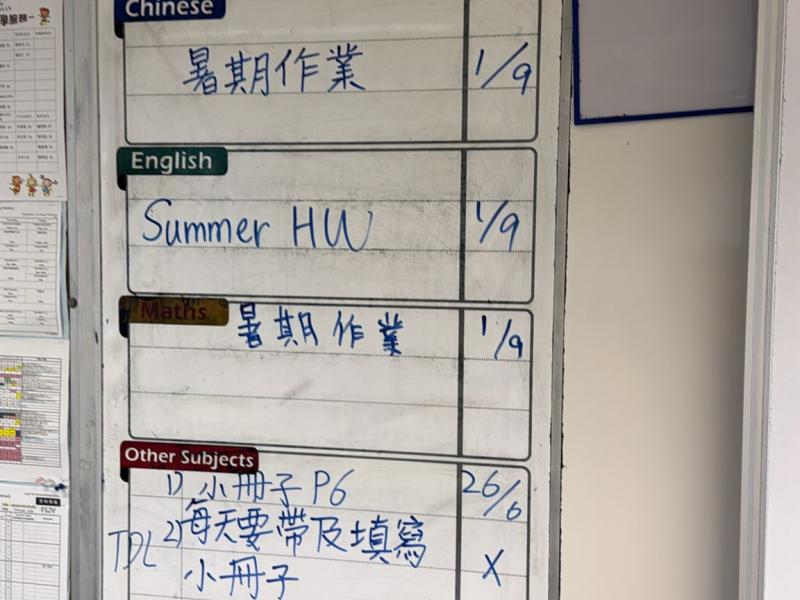 Chinese
暑期作業 1/9
English
Summer HW 1/9
Maths
暑期作業 1/9
Other Subjects
1) 小冊子 P6 26/6
TDL 2) 每天要帶及填寫
小冊子 X